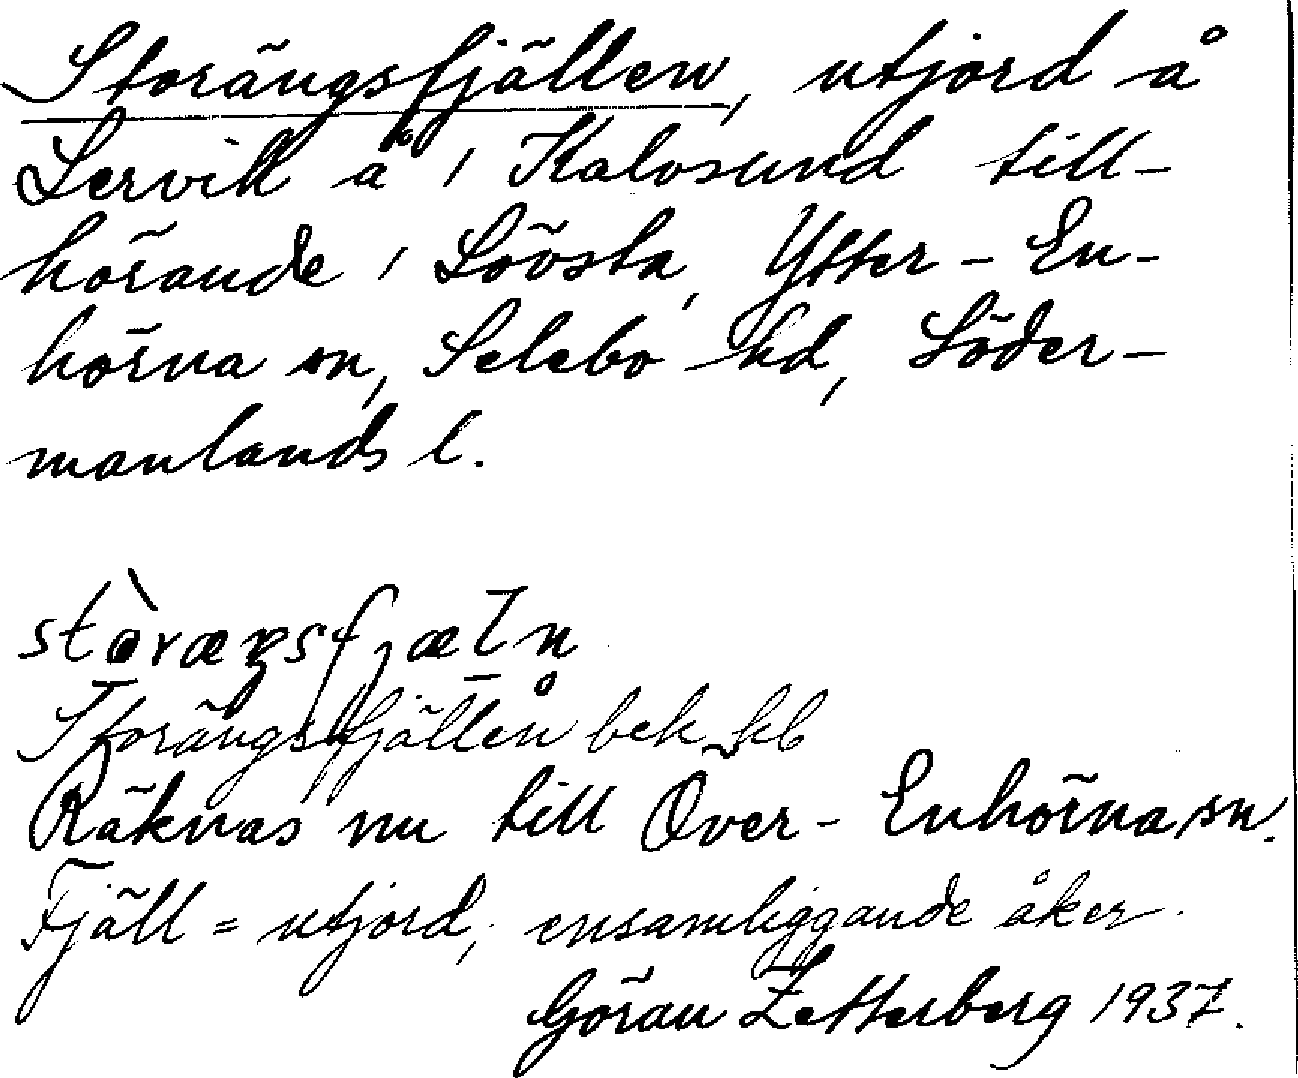 Storängsfjällen, utjord å
Lervik å i Kalvsund till-
hörande i Lövsta, Ytter-En-
hörna sn, Selebo hd, Söder-
manlands l.
Storängsfjällen bek kb
Räknas nu till Över-Enhörna sn.
Fjäll = utjord, ensamliggande åker.
Göran Zetterberg 1937.